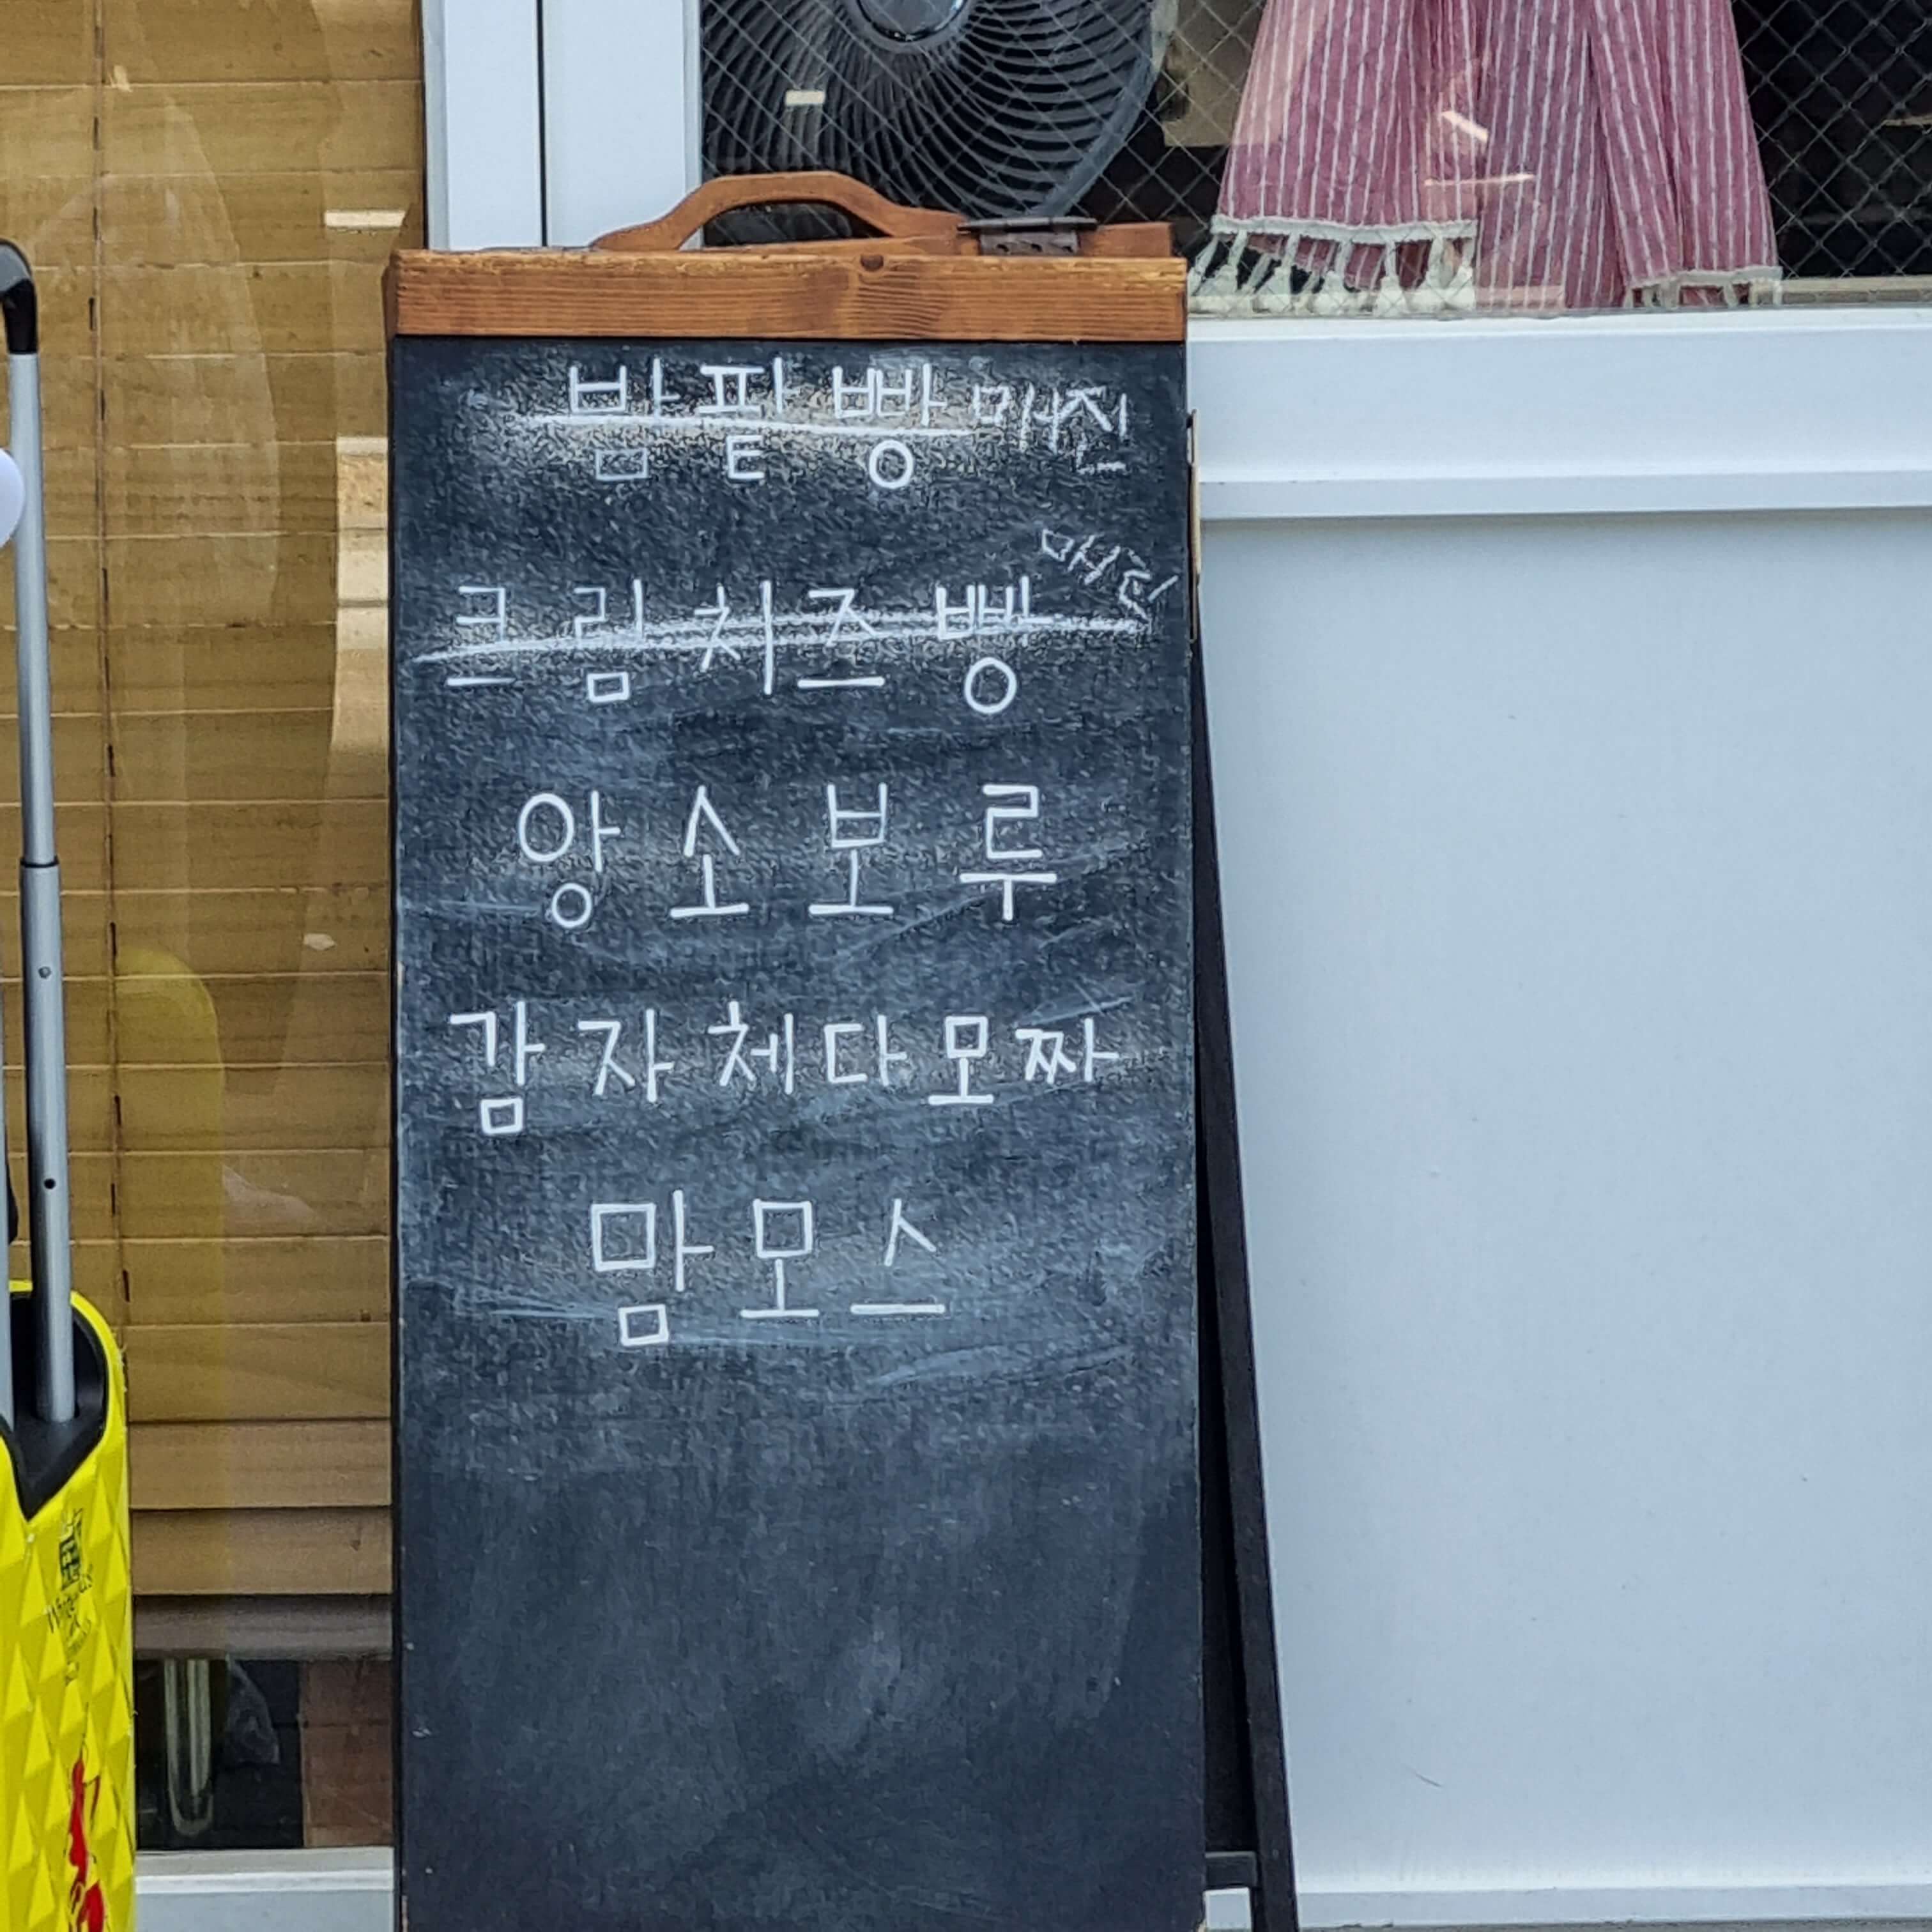 밤팥빵 매진
매진
크림치즈빵
앙소보루
감자체다모짜
맘모스